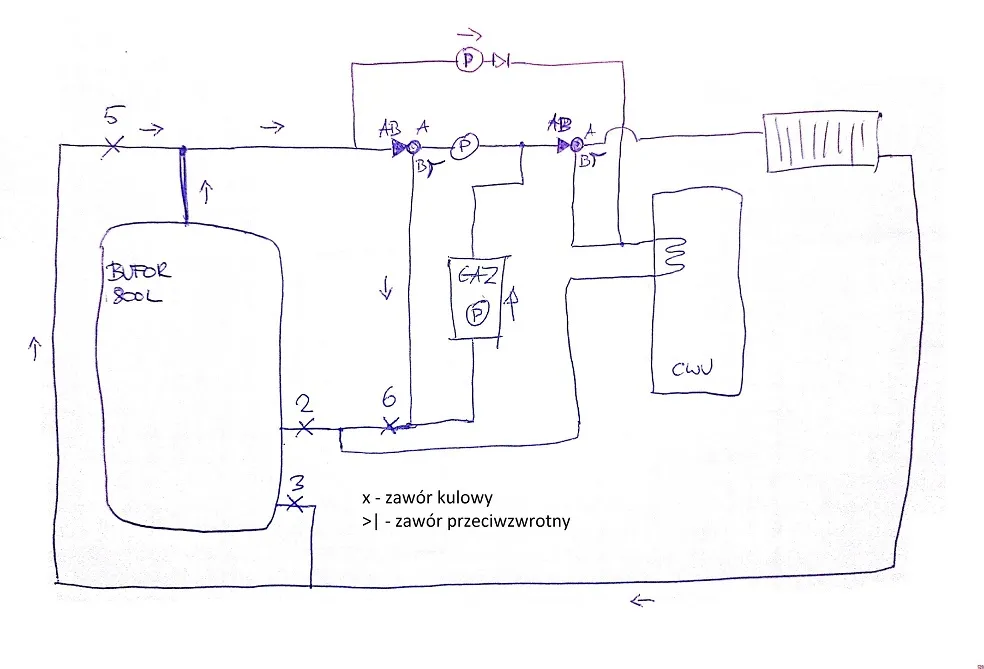 P
5
AB A
P
B
AB A
B
BUFOR
800L
GAZ
P
CWU
2
6
3
x - zawór kulowy
>| - zawór przeciwzwrotny